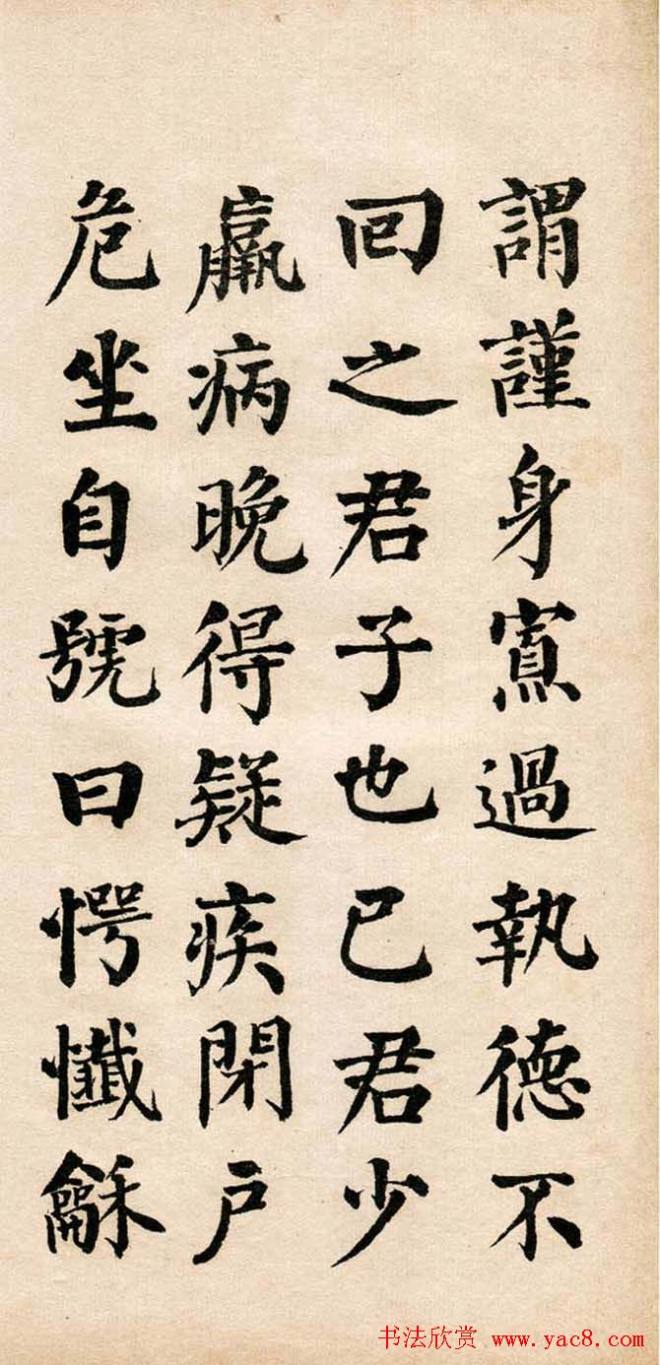 謂謹身寡過執德不
回之君子也已君少
羸病晚得疑疾閉戶
危坐自號曰愕懺龢
书法欣赏 www.yac8.com